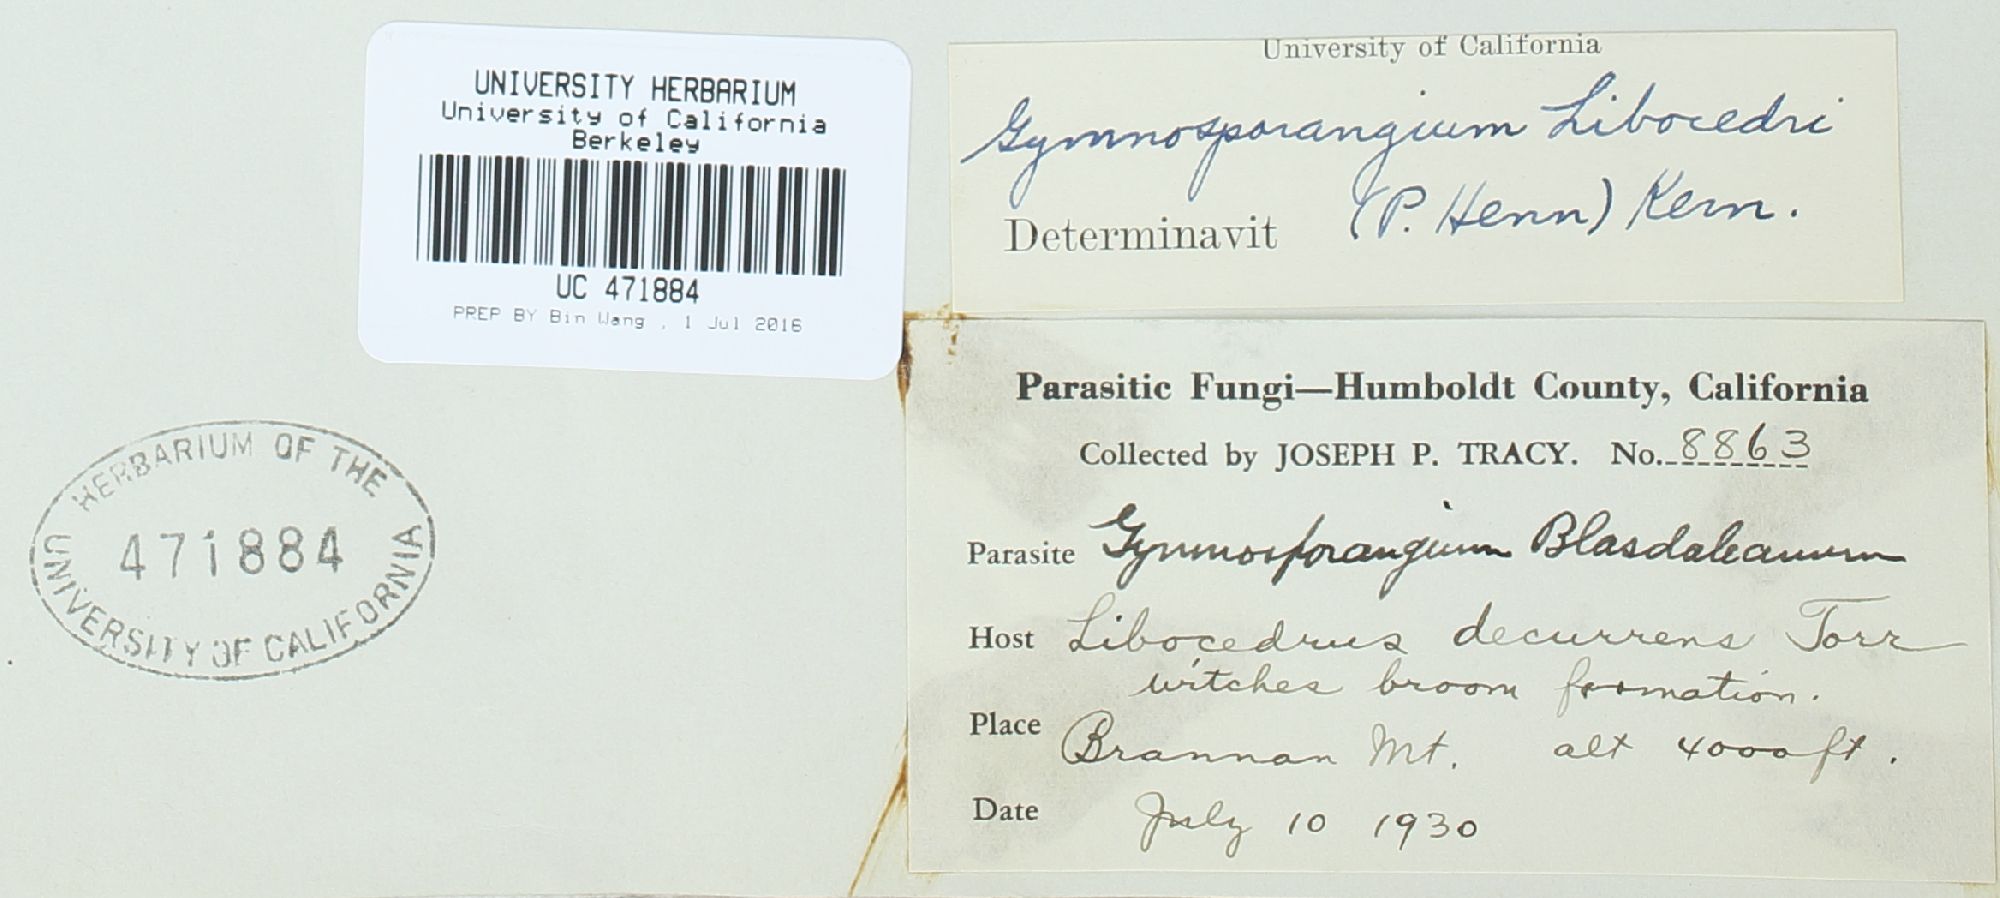 UNIVERSITY HERBARIUM
University of California
Berkeley
UC 471884
PREP BY Bin Wang , 1 Jul 2016
HERBARIUM OF THE
471884
UNIVERSITY OF CALIFORNIA
University of California
Gymnosporangium Libocedri
Determinavit (P. Henn) Kern.
Parasitic Fungi—Humboldt County, California
Collected by JOSEPH P. TRACY. No. 8863
Parasite Gymnosporangium Blasdaleanum
Host Libocedrus decurrens Torr
witches broom formation.
Place Brannan Mt. alt 4000 ft.
Date July 10 1930